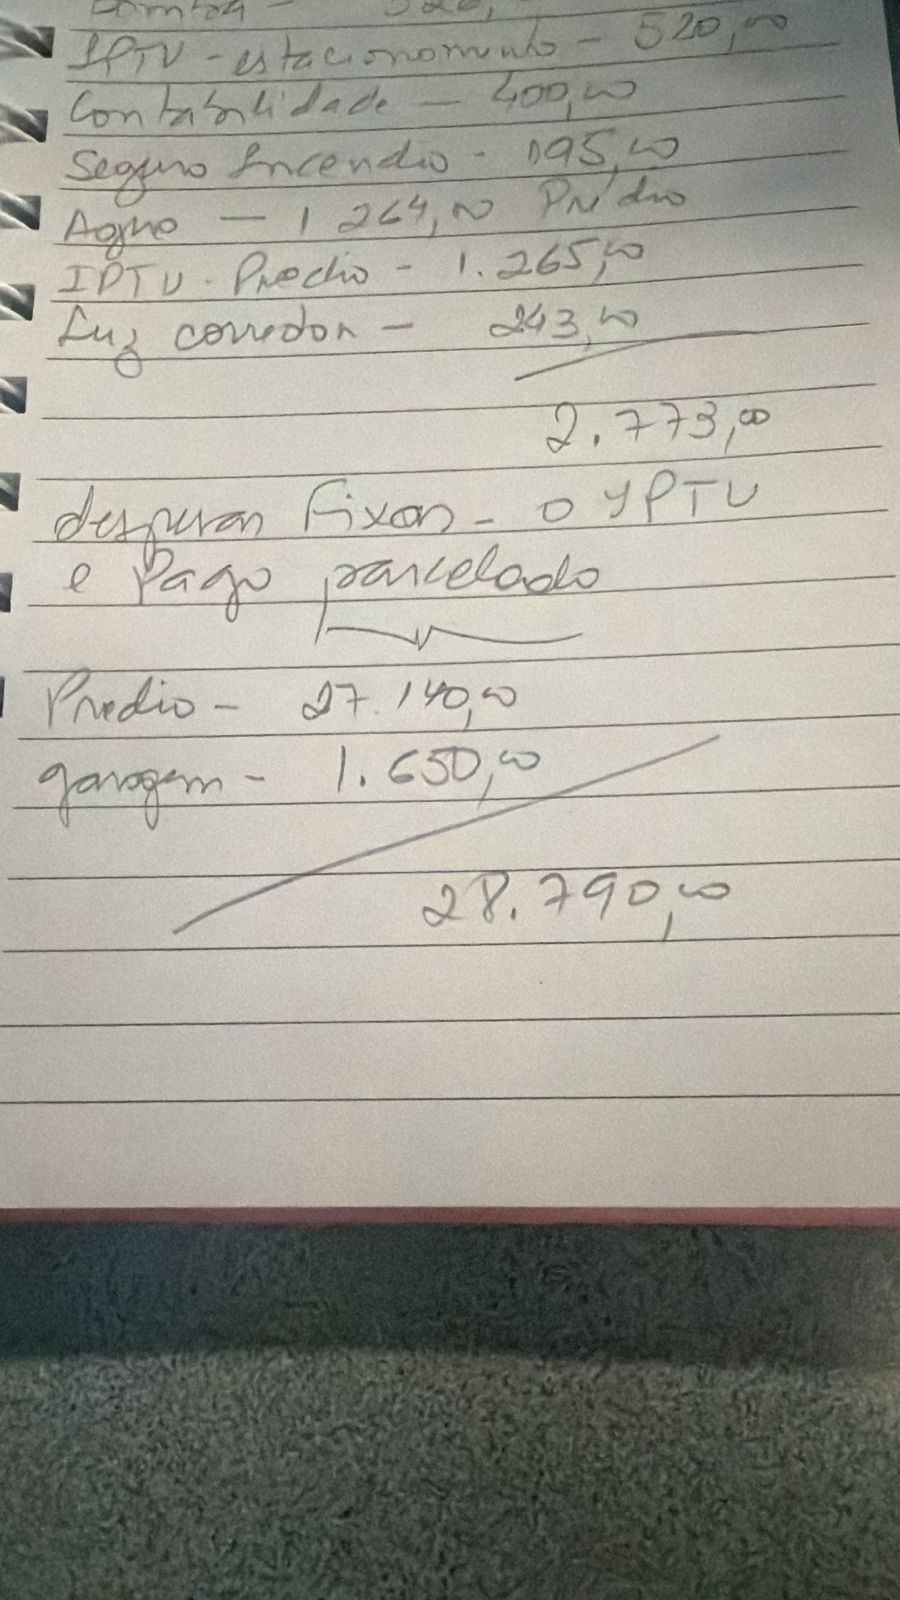 IPTU - estacionamento - 520,00
Contabilidade - 400,00
Seguro Incendio - 195,00
Agua - 1 264,00 Prédio
IPTU - Predio - 1.265,00
Luz corredor - 243,00
2.773,00
despesas Fixas - o IPTU
e Pago parcelado
Predio - 27.140,00
garagem - 1.650,00
28.790,00